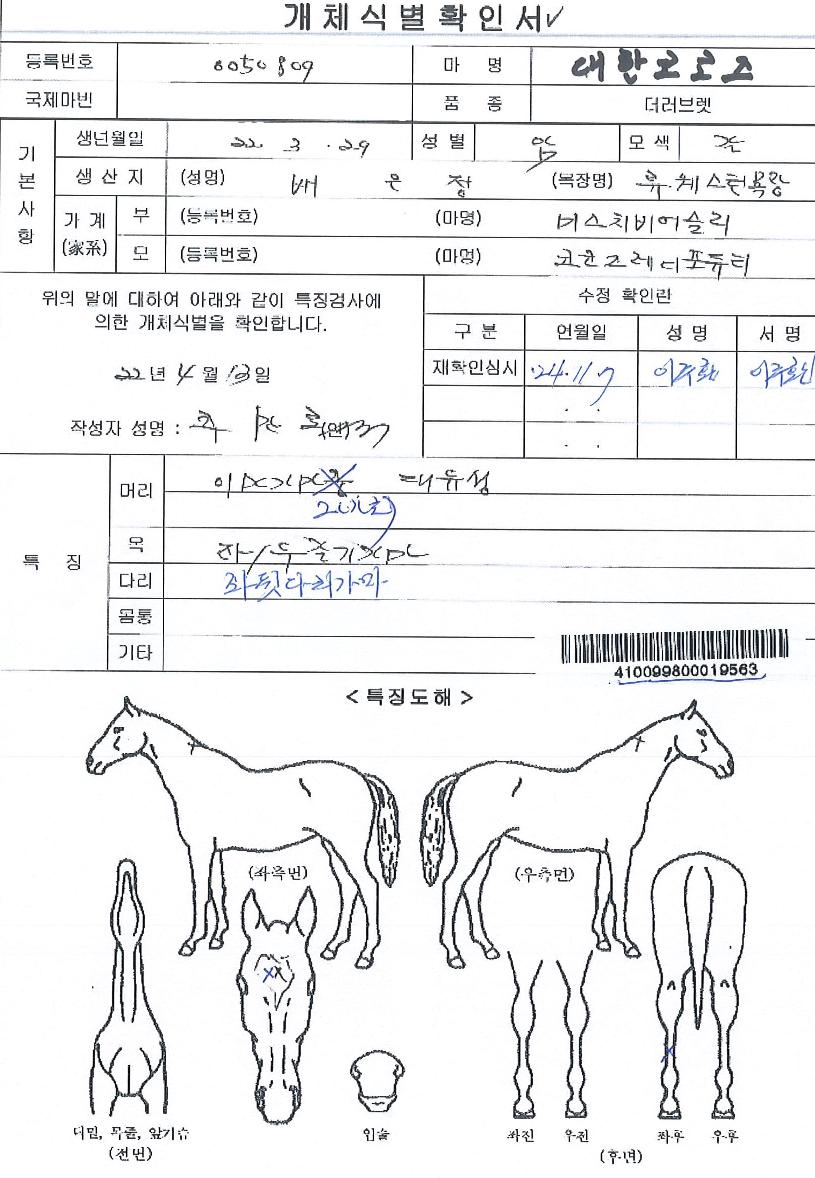 개체식별확인서✓
등록번호 0050809 마 명 대한로로즈
국제마번 품 종 더러브렛
기본사항
생년월일 22. 3. 29 성별 암 모색 갈
생산지 (성명) 배 은 정 (목장명)
가계 (家系) 부 (등록번호) (마명) 머스치비어슬리
모 (등록번호) (마명)
위의 말에 대하여 아래와 같이 특징검사에
의한 개체식별을 확인합니다.
22년 4월 13일
작성자 성명 :
수정 확인란
구 분 연월일 성 명 서 명
재확인심시 '24.11.7
. .
. .
특 징
머리
목
다리 좌뒷다리가마
몸통
기타
410099800019563
< 특징도해 >
(좌측면) (우측면)
턱밑, 목줄, 앞가슴
(전면)
입술
좌전 우전 좌후 우후
(후면)